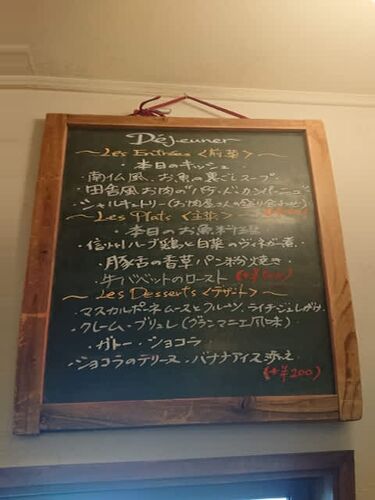 Déjeuner
～Les Entrées <前菜>～
・本日のキッシュ
・南仏風、お魚の裏ごしスープ
・田舎風お肉の"パテ・ド・カンパーニュ"
・シャルキュトリー(お肉屋さんの盛り合わせ)
～Les Plats <主菜>～
・本日のお魚料理
・信州ハーブ鶏と白菜のヴィネガー煮
・豚舌の香草パン粉焼き
・牛バベットのロースト
～Les Desserts <デザート>～
マスカルポーネムースとフルーツ、ライチジュレがけ
・クレーム・ブリュレ(グランマニエ風味)
・ガトー・ショコラ
・ショコラのテリーヌ バナナアイス添え
(+¥200)